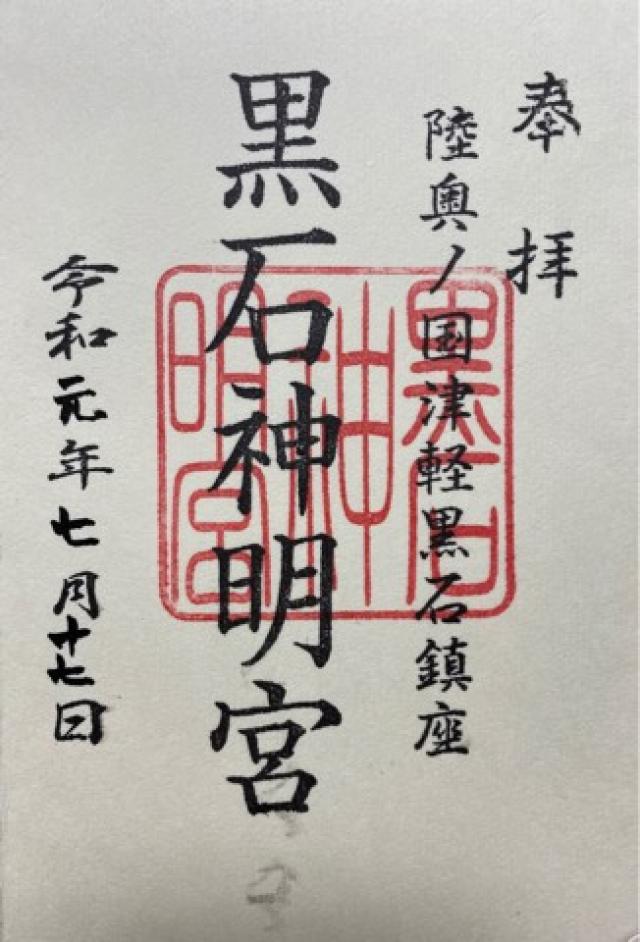 奉拝
陸奥ノ国津軽黒石鎮座
黒石神明宮
令和元年七月十七日
黒石神明宮